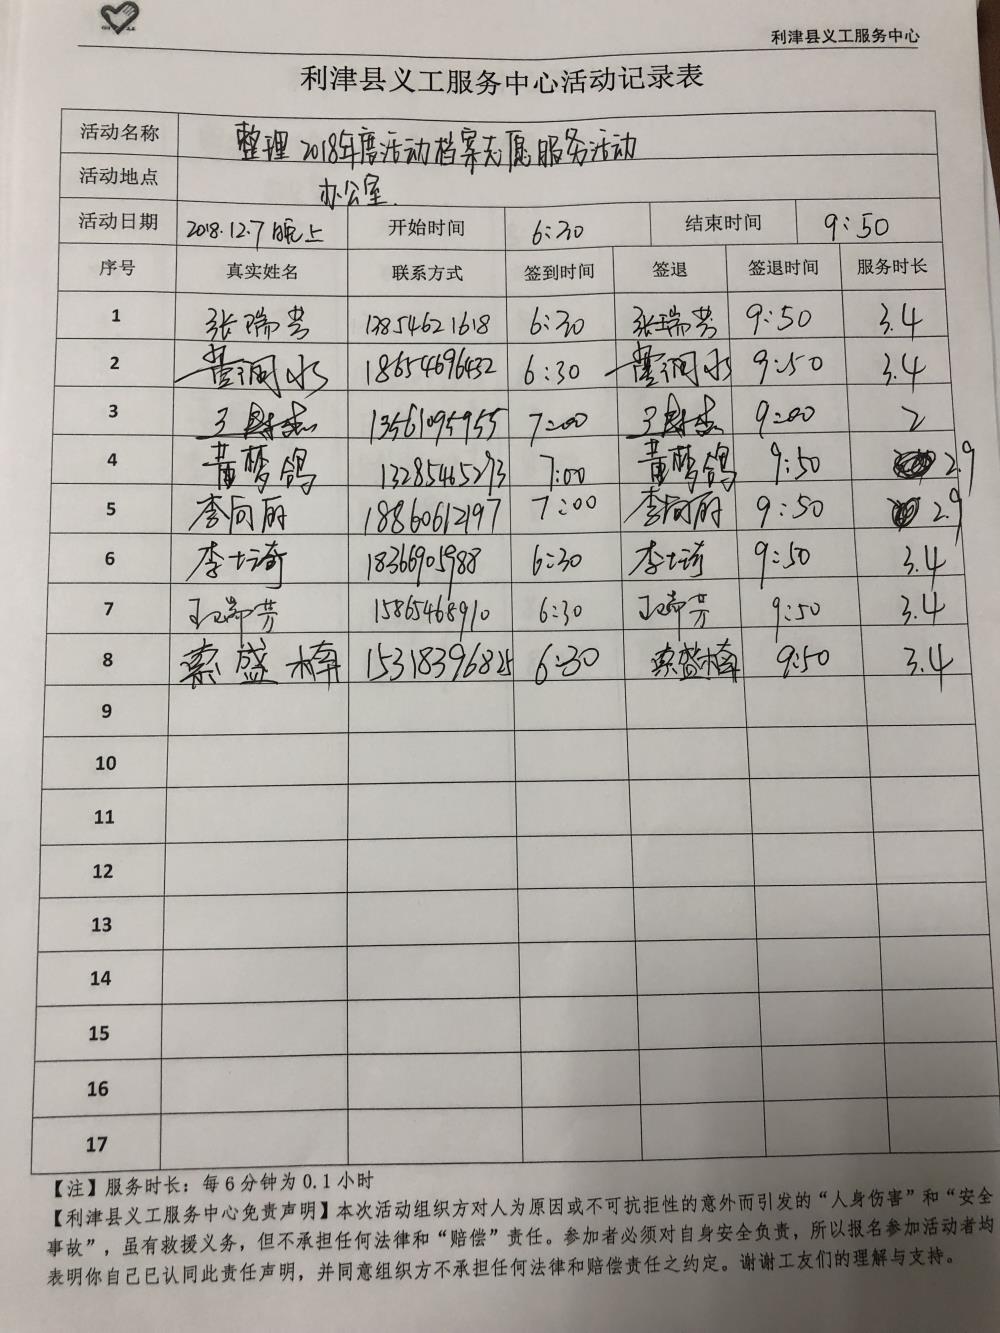 利津县义工服务中心
利津县义工服务中心活动记录表
活动名称 整理2018年度活动档案志愿服务活动
活动地点 办公室
活动日期 2018.12.7晚上 开始时间 6:30 结束时间 9:50
序号 真实姓名 联系方式 签到时间 签退 签退时间 服务时长
1 张瑞芳 13854621618 6:30 张瑞芳 9:50 3.4
2 18654696432 6:30 9:50 3.4
3 13561095955 7:00 9:00 2
4 黄梦鸽 13285465293 7:00 黄梦鸽 9:50 2.9
5 李向丽 18860612197 7:00 李向丽 9:50 2.9
6 李士琦 18366905988 6:30 李士琦 9:50 3.4
7 王瑞芳 15865468910 6:30 王瑞芳 9:50 3.4
8 索盛楠 15318396825 6:30 索盛楠 9:50 3.4
9
10
11
12
13
14
15
16
17
【注】服务时长：每6分钟为0.1小时
【利津县义工服务中心免责声明】本次活动组织方对人为原因或不可抗拒性的意外而引发的“人身伤害”和“安全
事故”，虽有救援义务，但不承担任何法律和“赔偿”责任。参加者必须对自身安全负责，所以报名参加活动者均
表明你自己已认同此责任声明，并同意组织方不承担任何法律和赔偿责任之约定。谢谢工友们的理解与支持。